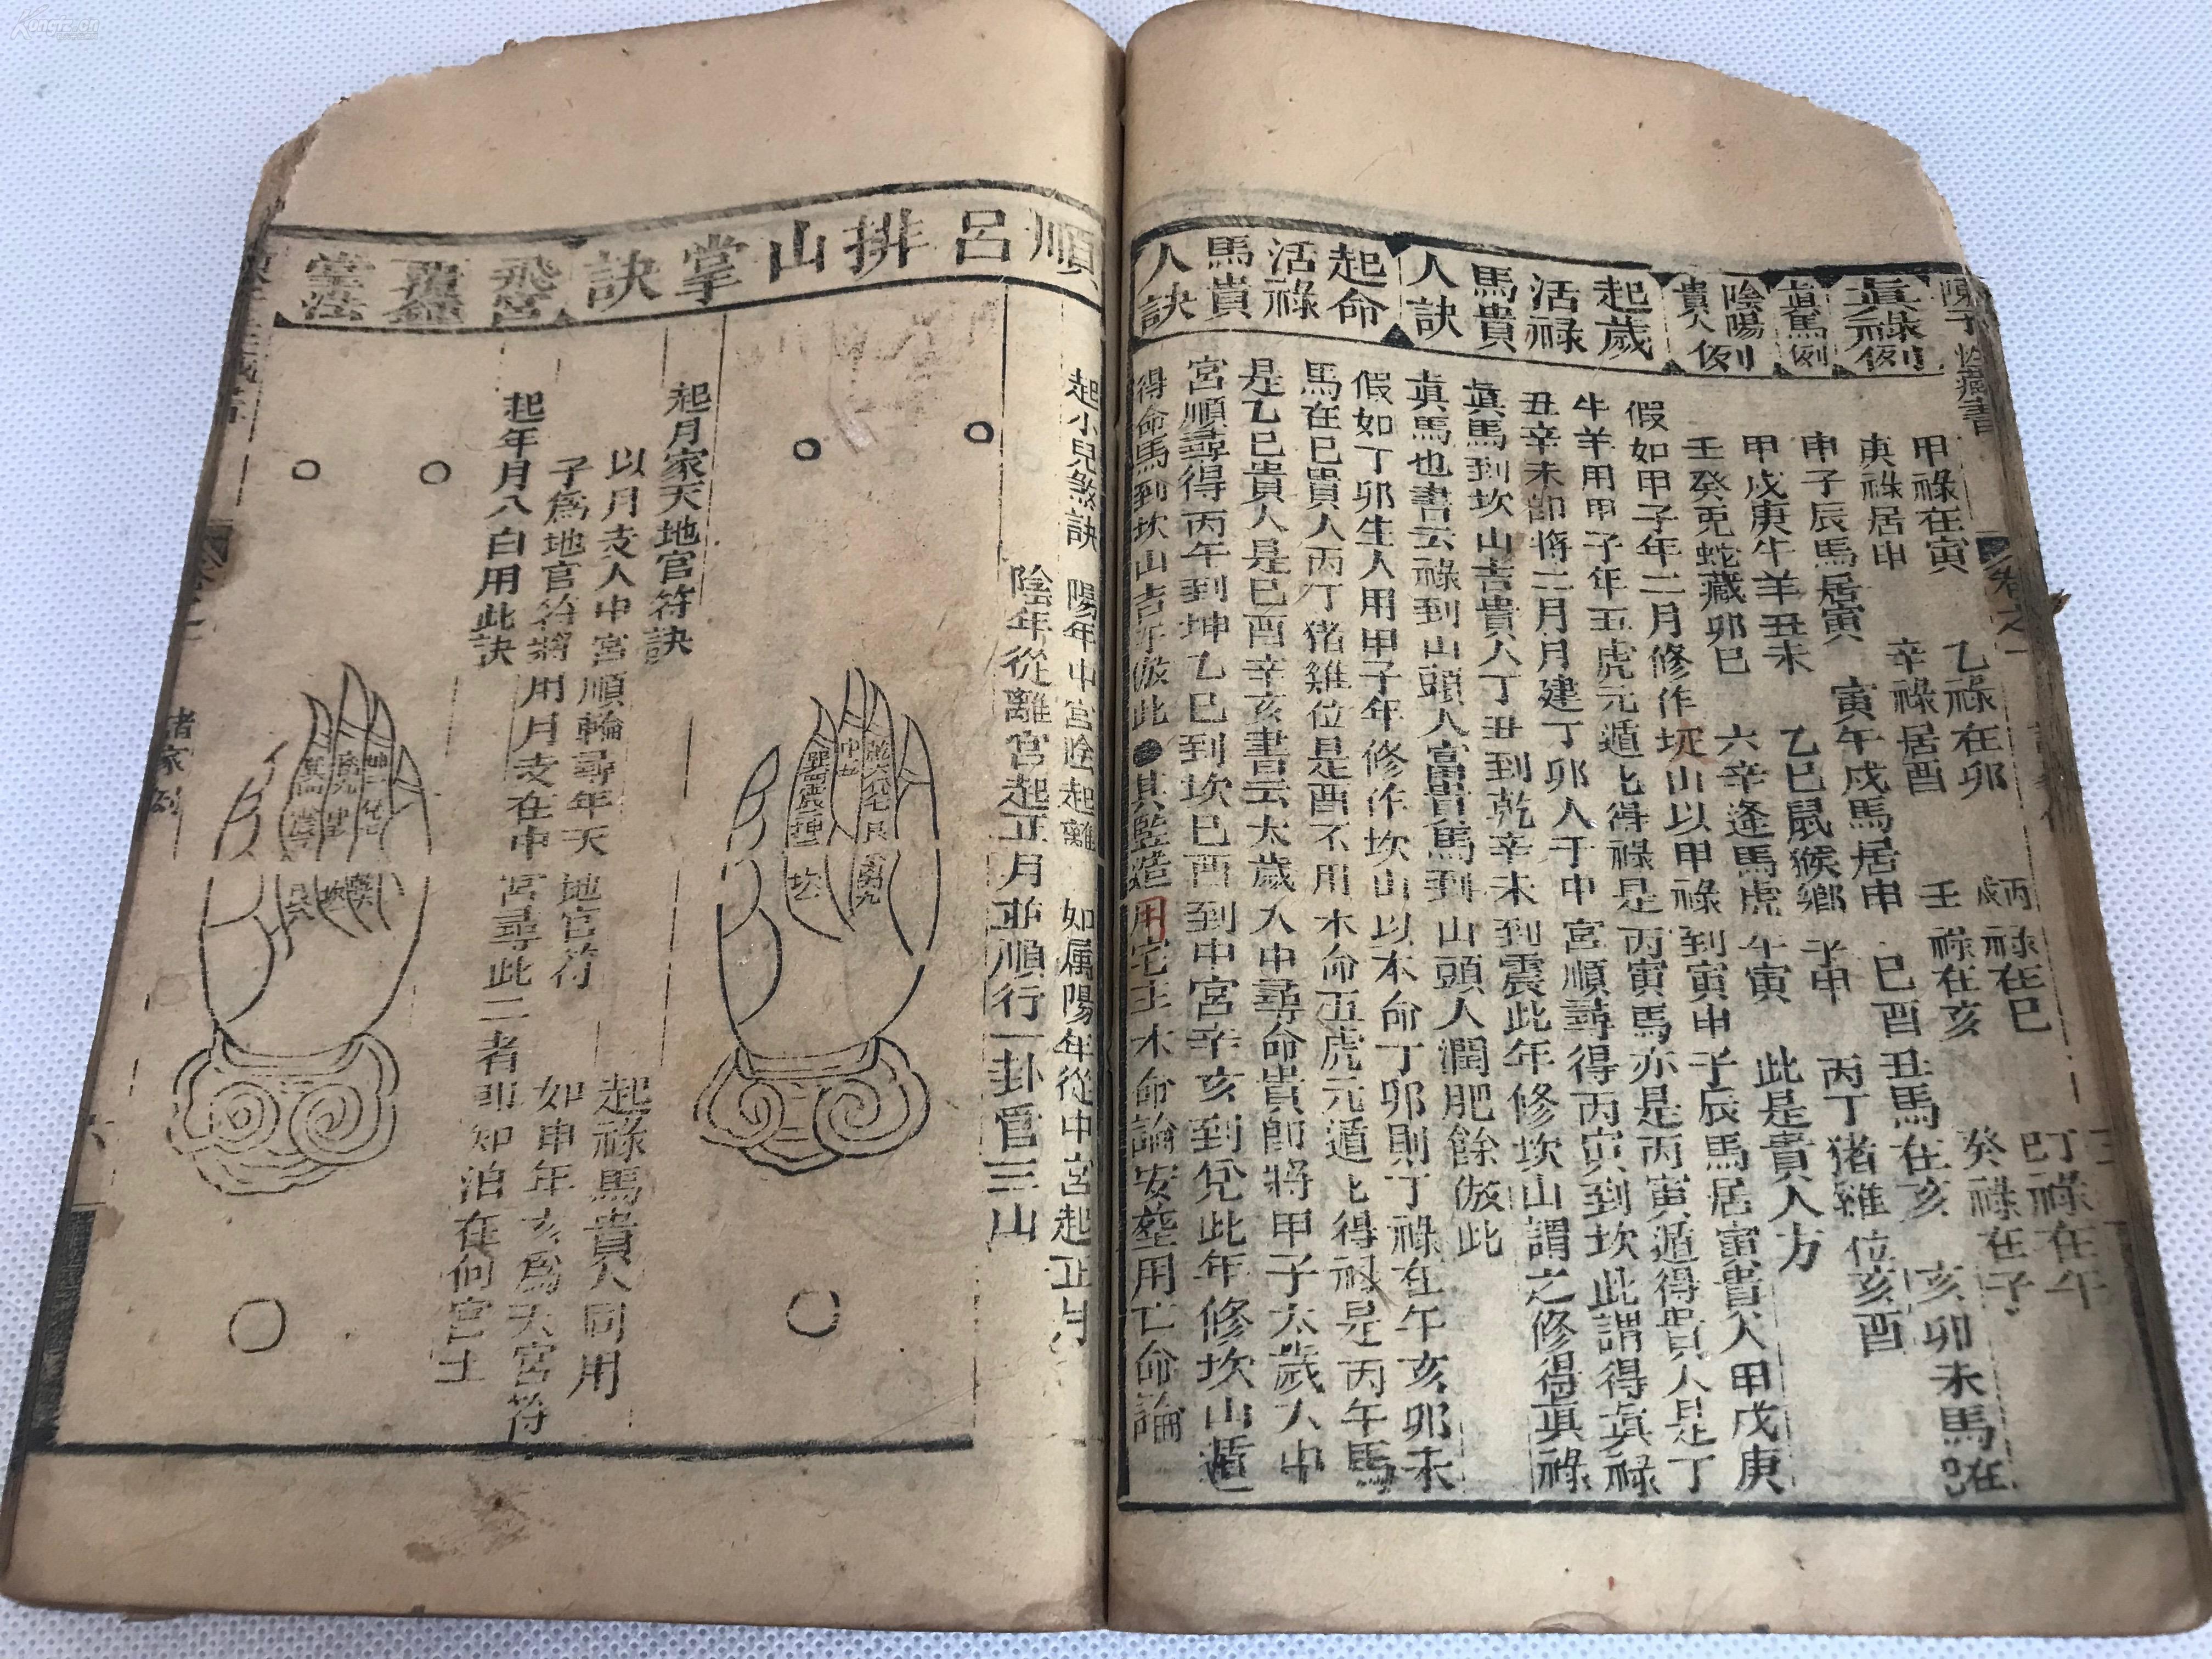 陳子性藏書
卷之一
真祿例
真馬例
陰陽貴人例
起歲活祿馬貴人訣
起命活祿馬貴人訣
甲祿在寅 乙祿在卯 丙戊祿在巳 丁己祿在午
庚祿居申 辛祿居酉 壬祿在亥 癸祿在子
申子辰馬居寅 寅午戌馬居申 巳酉丑馬在亥 亥卯未馬在巳
甲戊庚牛羊丑未 乙巳鼠猴鄉子申 丙丁猪雞位亥酉
壬癸兎蛇藏卯巳 六辛逢馬虎午寅 此是貴人方
假如甲子年二月修作坎山以甲祿到寅申子辰馬居寅貴人甲戊庚
牛羊用甲子年五虎元遁匕得祿是丙寅馬亦是丙寅遁得貴人是丁
丑辛未即將二月月建丁卯入于中宮順尋得丙寅到坎此謂得真祿
真馬到坎山吉貴人丁丑到乾辛未到震此年修坎山謂之修得真祿
真馬也書云祿到山頭人富貴馬到山頭人潤肥餘倣此
假如丁卯生人用甲子年修作坎山以本命丁卯則丁祿在午亥卯未
馬在巳貴人丙丁猪雞位是酉不用木命五虎元遁匕得祿是丙午馬
是乙巳貴人是己酉辛亥書云太歲入中尋命貴即將甲子太歲入中
宮順尋得丙午到坤乙巳到坎己酉到中宮辛亥到兌此年修坎山遁
得命馬到坎山吉餘倣此●其監造用宅主木命論安塟用亡命論
順呂排山掌訣
飛宮
掌法
起小兒煞訣 陽年中宮陰起離 如属陽年從中宮起正月
陰年從離宮起正月並順行一卦管三山
起月家天地官符訣
以月支入中宮順輪尋年天地官符 起祿馬貴人同用
子為地官符將用月支在中宮尋此二者即知泊在何宮土
如申年亥為天官符
起年月八白用此訣
諸家例